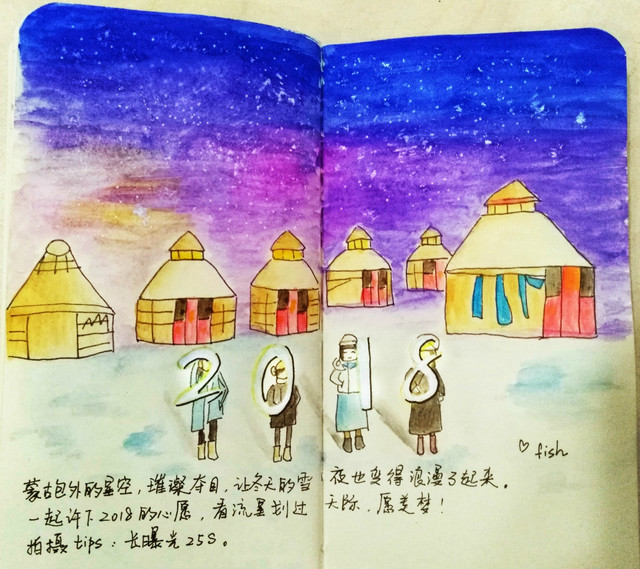 2018
♡ fish
蒙古包外的星空，璀璨夺目，让冬天的雪夜也变得浪漫了起来。
一起许下2018的心愿，看流星划过天际，愿美梦！
拍摄tips：长曝光25S。